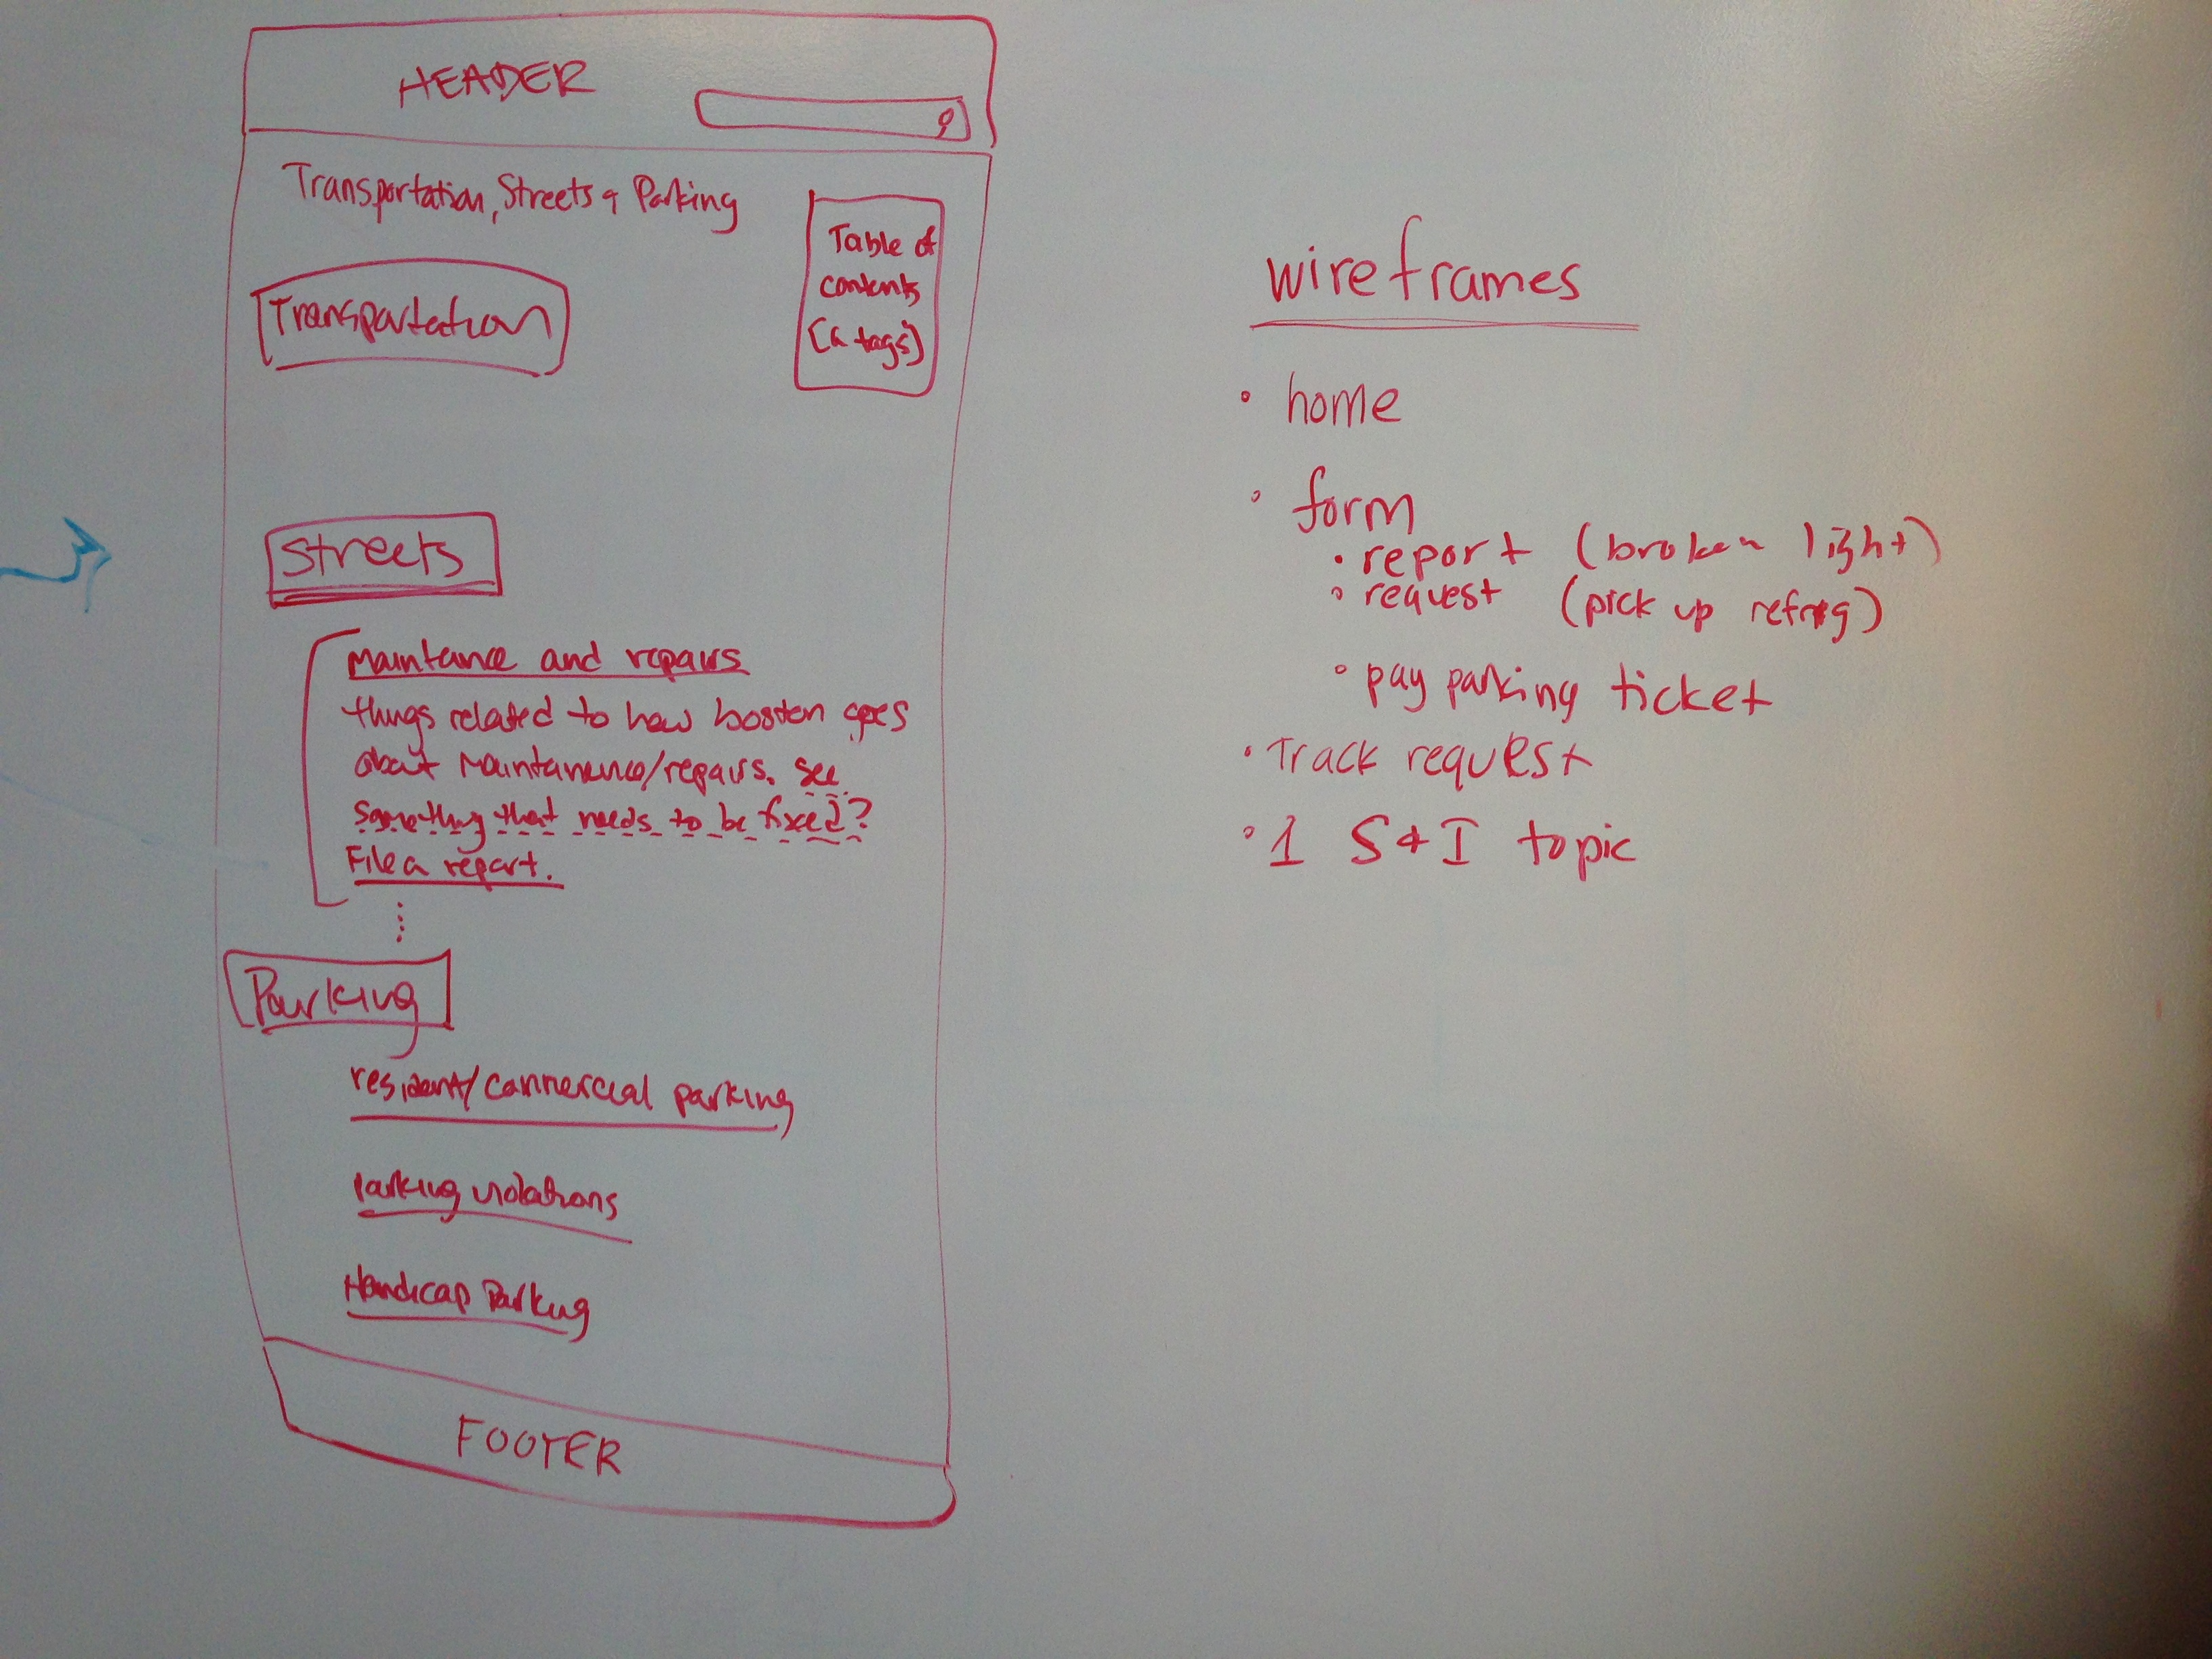 HEADER
Transportation, Streets & Parking
Table of
contents
(a tags)
Transportation
Streets
Maintance and repairs
things related to how boston goes
about maintanence/repairs. see
something that needs to be fixed?
File a report.
Parking
resident/commercial parking
parking violations
Handicap Parking
FOOTER
wireframes
• home
• form
• report (broken light)
• request (pick up refrig)
• pay parking ticket
• Track request
• 1 S & I topic